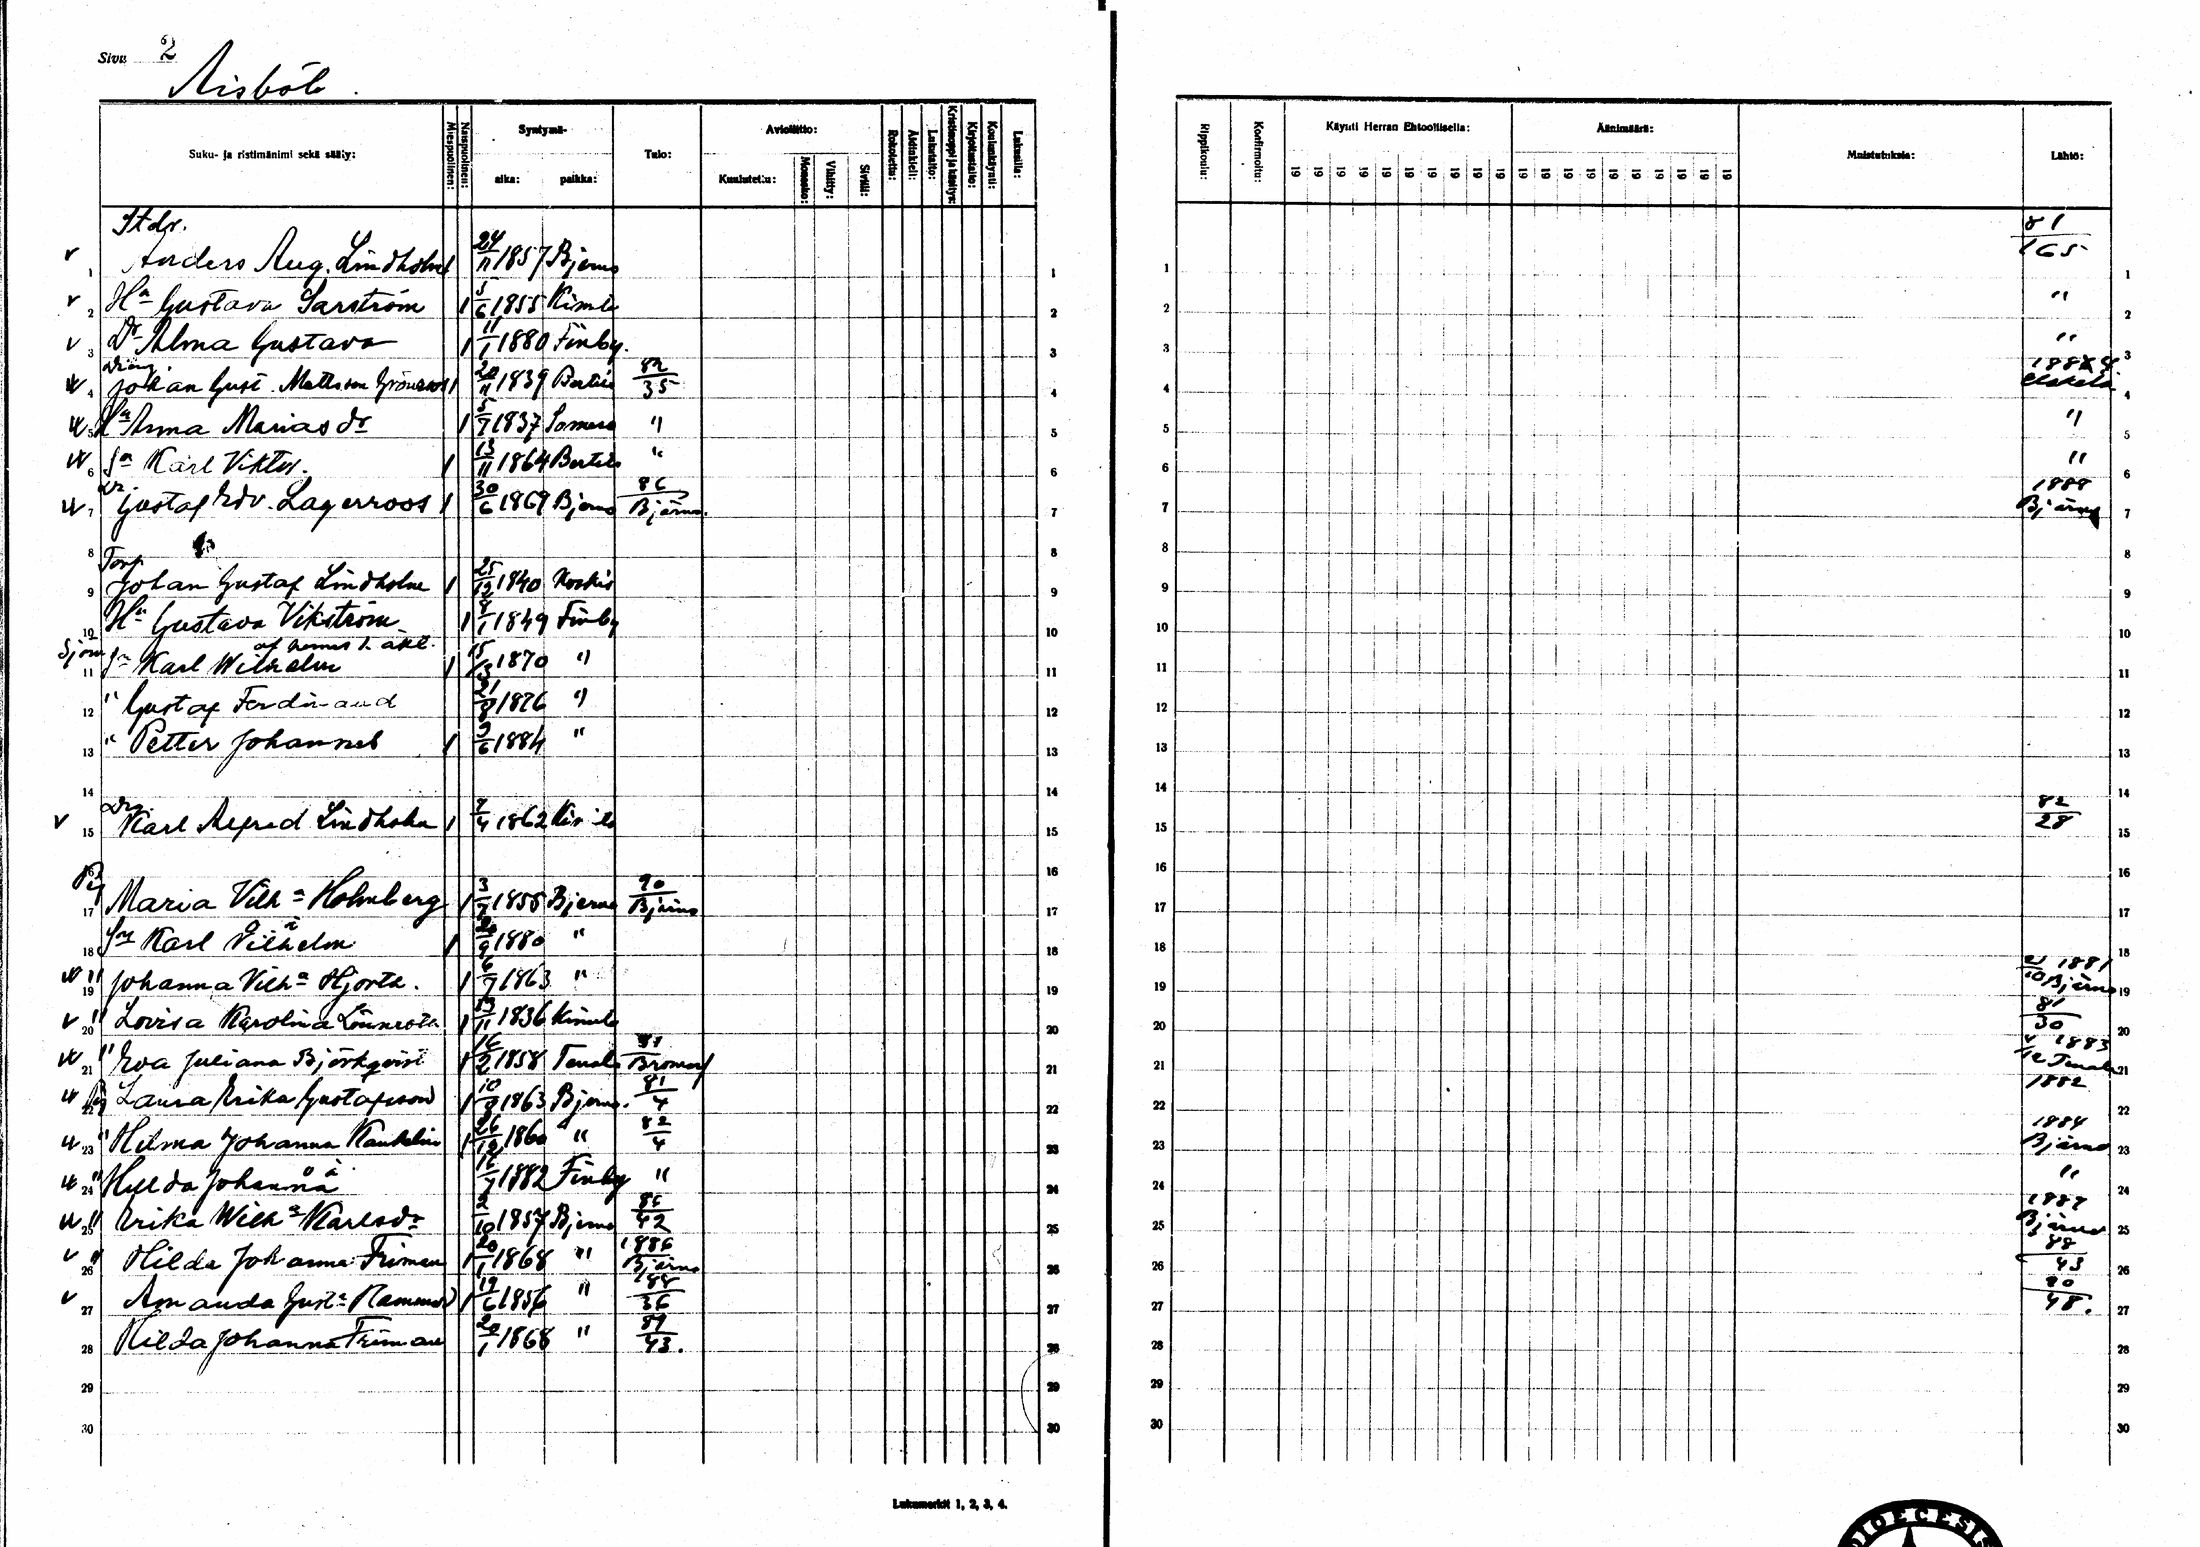 Sivu 2
Aisböle
Suku- ja ristimänimi sekä sääty: Miespuolinen: Naispuolinen: Syntymä- aika: paikka: Tulo: Avioliitto: Kuulutettu: Morsianko: Vihitty: Siviili: Rokotettu: Äidinkieli: Lukutaito: Kristinoppi ja käsitys: Kirjoitustaito: Koulunkäynti: Lukusilla:
Rippikoulu: Konfirmoitu: Käynti Herran Ehtoollisella: Äänimäärä: Muistutuksia: Lähtö:
19 19 19 19 19 19 19 19 19 19 19 19 19 19 19 19 19 19 19 19
Stdr.
v 1 Anders Aug. Lindholm 1 24/11 1857 Bjerno 1 1 81/165 1
v 2 Hu Gustava Sarström 1 5/6 1855 Kimito 2 2 " 2
v 3 Dr Alma Gustava 1 11/1 1880 Finby. 3 3 " 3
Dräng.
4 Johan Gust. Mattsson Grönroos 1 20/11 1839 Bertils 82/35 4 4 1884 4
5 Hu Anna Mariasdr 1 5/7 1837 Somero " 5 5 " 5
6 Sn Karl Viktor. 1 13/11 1864 Bertils " 6 6 " 6
Dr.
7 Gustaf Edv. Lagerroos 1 30/6 1869 Bjerno 86/Bjärno. 7 7 1888 Bjärno 7
8 8 8 8
Torp.
9 Johan Gustaf Lindholm 1 25/12 1840 Koskis 9 9 9
10 Hu Gustava Vikström 1 8/1 1849 Finby 10 10 10
Sjöm 11 Sn Karl Wilhelm 1 15/ 1870 " 11 11 11
12 " Gustaf Ferdinand 21/8 1876 " 12 12 12
13 " Petter Johannes 1 9/6 1884 " 13 13 13
14 14 14 14
Drg.
v 15 Karl Alfred Lindholm 1 /4 1862 15 15 82/28 15
16 16 16 16
Pig
17 Maria Vilh:a Holmberg 1 3/7 1855 Bjerno 90/Bjärno 17 17 17
18 Sn Karl Vilhelm 1 /9 1880 " 18 18 18
19 " Johanna Vilh:a Hjorth. 1 6/7 1863 " 19 19 1881 Bjärno 19
v 20 " Lovisa Karolina Lönnroth 1 13/11 1836 Kimito 20 20 81/30 20
21 " Eva Juliana Björkqvist 1 16/2 1858 Tenala 81/Bromarf 21 21 1883 Tenala 21
22 Pig Laura Erika Gustafsson 1 10/9 1863 Bjerno. 81/4 22 22 1882 22
23 " Hilma Johanna 1 26/12 1860 " 82/4 23 23 1884 Bjärno 23
24 " Hulda Johanna /7 1882 Finby " 24 24 " 24
25 " Erika Wilh:a Karlsdr 1 2/10 1857 Bjerno 86/42 25 25 1887 Bjärno 25
v 26 " Hilda Johanna Friman 1 20/1 1868 " 1886 Bjärno 26 26 88/43 26
v 27 Amanda Gust:a 1 19/6 1856 " 188/36 27 27 90/48. 27
28 Hilda Johanna Friman 20/1 1868 " 89/43. 28 28 28
29 29 29 29
30 30 30 30
Lukumerkit 1, 2, 3, 4.
DIOECESIS